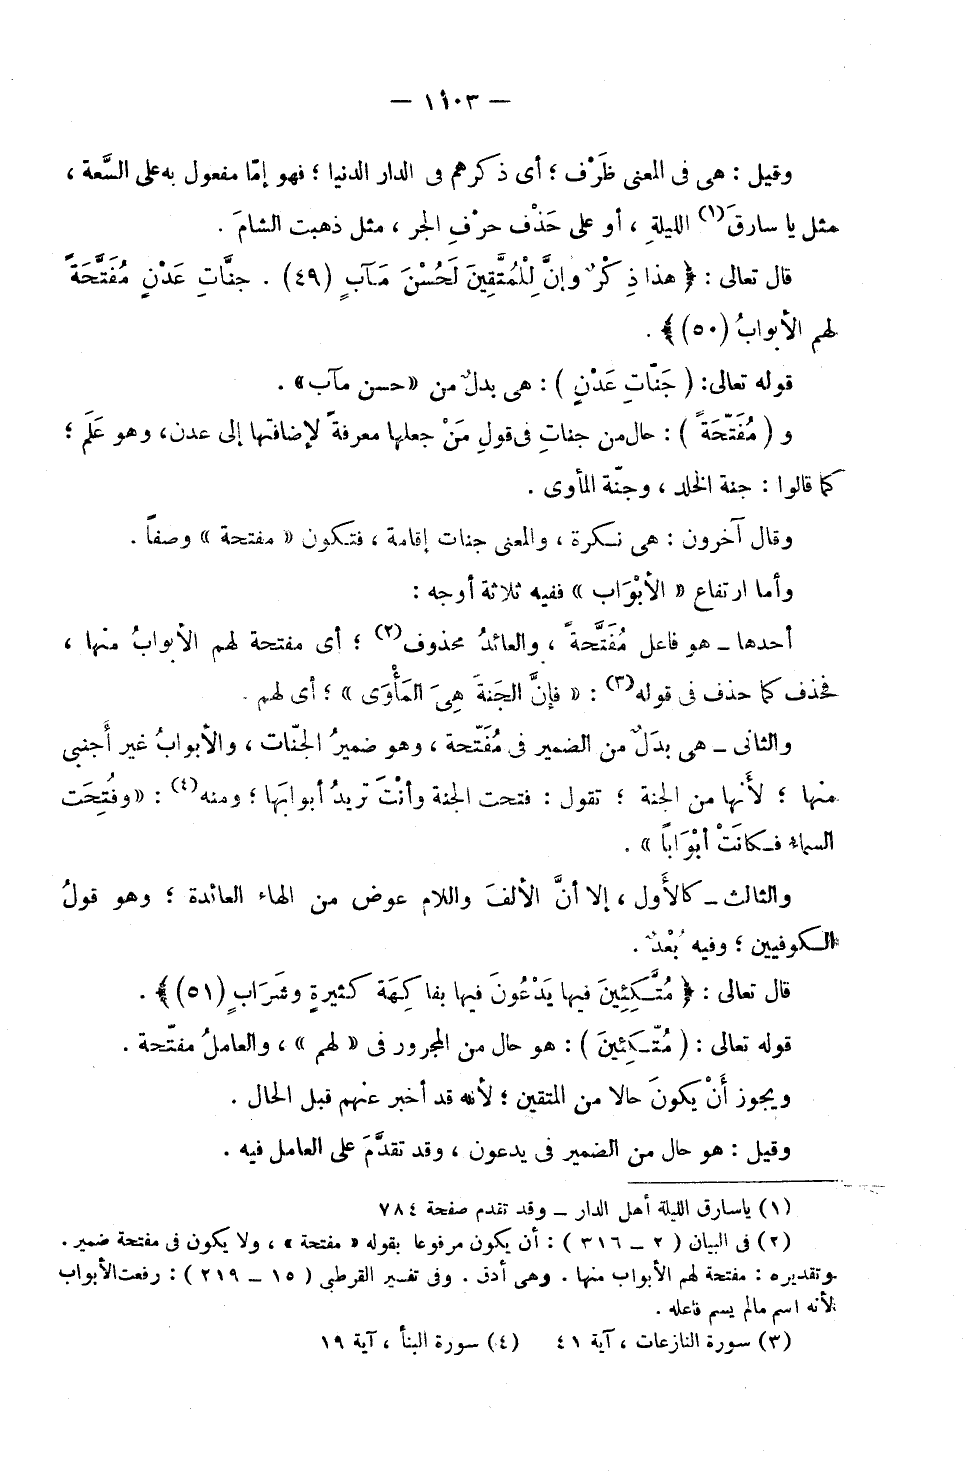 — ١١٠٣ —
وقيل : هى فى المعنى ظَرْف ؛ أى ذكرهم فى الدار الدنيا ؛ فهو إمّا مفعول به على السَّعة ،
مثل يا سارقَ(١) الليلةِ ، أو على حَذْف حرْفِ الجر ، مثل ذهبت الشامَ .
قال تعالى : ﴿ هذا ذِكْرٌ وإنَّ لِلْمُتَّقِينَ لَحُسْنَ مَآبٍ (٤٩) . جنَّاتِ عَدْنٍ مُفَتَّحَةً
لهم الأبوابُ (٥٠) ﴾ .
قوله تعالى: ( جَنّاتِ عَدْنٍ ) : هى بدلٌ من «حسن مآب» .
و ( مُفَتّحَةً ) : حال من جنات فى قولِ مَنْ جعلها معرفةً لإضافتها إلى عدن، وهو عَلَم ؛
كما قالوا : جنة الخلد ، وجنّة المأوى .
وقال آخرون : هى نكرة ، والمعنى جنات إقامة ، فتكون « مفتحة » وصفاً .
وأما ارتفاع « الأبْوَاب » ففيه ثلاثة أوجه :
أحدها ـ هو فاعل مُفَتَّحةً ، والعائدُ محذوف(٢) ؛ أى مفتحة لهم الأبوابُ منها ،
فحذف كما حذف فى قوله(٣) : « فإنَّ الجَنةَ هِىَ المَأْوَى » ؛ أى لهم .
والثانى ـ هى بدَلٌ من الضمير فى مُفَتّحة ، وهو ضميرُ الجنّات ، والأبوابُ غير أَجنبى
منها ؛ لأَنها من الجنة ؛ تقول : فتحت الجنة وأنْتَ تريدُ أبوابَها ؛ ومنه(٤) : «وفُتِحَت
السماء فـكانَتْ أبْوَاباً » .
والثالث ـ كالأَول ، إلا أنَّ الألفَ واللام عوض من الهاء العائدة ؛ وهو قولُ
الكوفيين ؛ وفيه بُعْدٌ .
قال تعالى : ﴿ مُتَّكِئِينَ فيها يَدْعُونَ فيها بفاكِهَة كَثيرةٍ وشَرَابٍ (٥١) ﴾ .
قوله تعالى : ( مُتّكِئينَ ) : هو حال من المجرور فى « لهم » ، والعاملُ مفتّحة .
ويجوز أَنْ يكونَ حالا من المتقين ؛ لأنه قد أخبر عنهم قبل الحال .
وقيل : هو حال من الضمير فى يدعون ، وقد تقدَّمَ على العامل فيه .
(١) ياسارق الليلة أهل الدار ـ وقد تقدم صفحة ٧٨٤
(٢) فى البيان ( ٢ ـ ٣١٦ ) : أن يكون مرفوعا بقوله « مفتحة » ، ولا يكون فى مفتحة ضمير .
وتقديره : مفتحة لهم الأبواب منها . وهى أدق . وفى تفسير القرطى ( ١٥ ـ ٢١٩ ) : رفعت الأبواب
لأنه اسم مالم يسم فاعله .
(٣) سورة النازعات ، آية ٤١ (٤) سورة النبأ ، آية ١٩